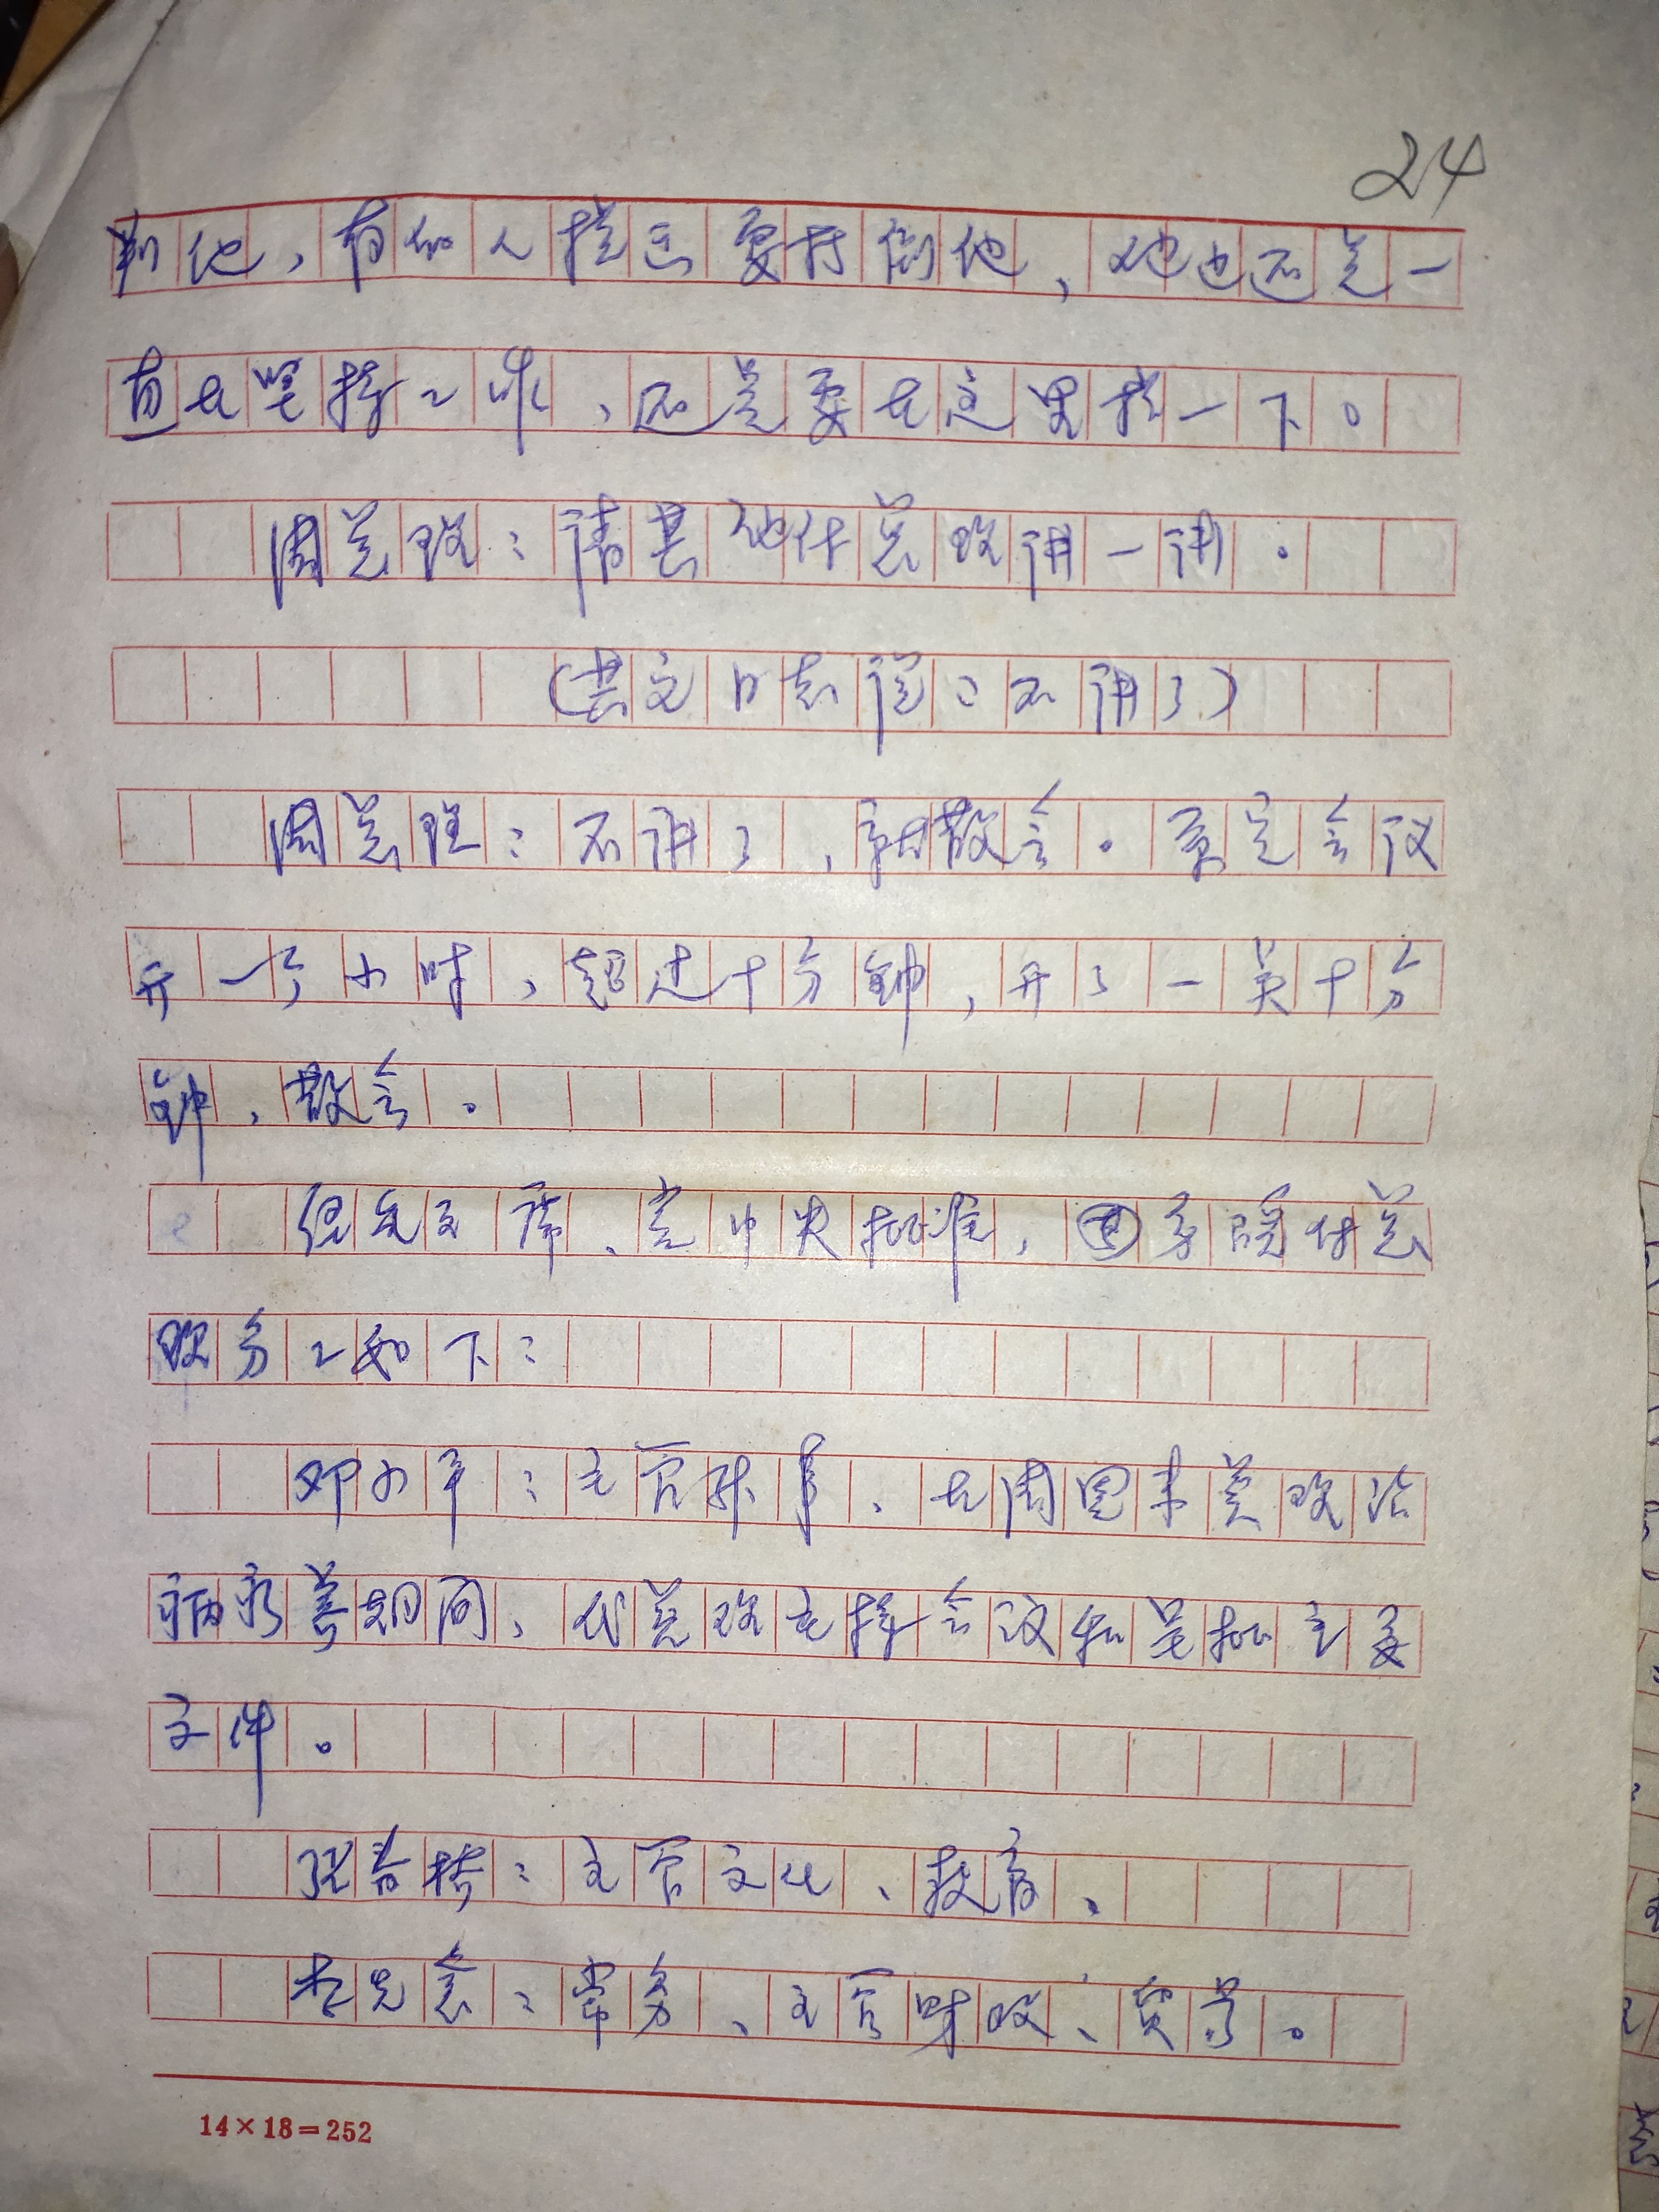 24
判他，有的人提出要打倒他，他也还是一
直在坚持工作，还是要在这里提一下。
周总理：请其他付总理讲一讲。
（其文日志说：不讲了）
周总理：不讲了，就散会。原定会议
开一个小时，超过十分钟，开了一点十分
钟，散会。
经毛主席、党中央批准，国务院付总
理分工如下：
邓小平：主管外事，在周恩来总理治
病疗养期间，代总理主持会议和呈批主要
文件。
张春桥：主管文化、教育。
李先念：常务、主管财政、贸易。
14×18=252